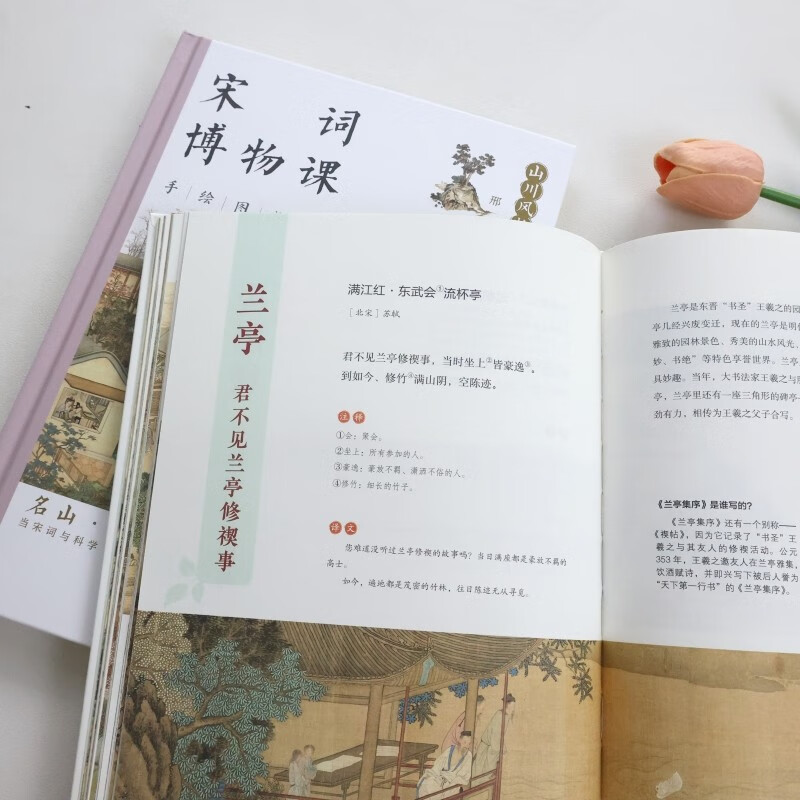 宋词
博物课
手绘图
山川风
邢
名山·
当宋词与科学
兰亭
君不见兰亭修禊事
满江红·东武会①流杯亭
［北宋］苏轼
君不见兰亭修禊事，当时坐上②皆豪逸③。
到如今、修竹④满山阴，空陈迹。
注释
①会：聚会。
②坐上：所有参加的人。
③豪逸：豪放不羁、潇洒不俗的人。
④修竹：细长的竹子。
译文
您难道没听过兰亭修禊的故事吗？当日满座都是豪放不羁的
高士。
如今，遍地都是茂密的竹林，往日陈迹无从寻觅。
兰亭是东晋“书圣”王羲之的园
亭几经兴废变迁，现在的兰亭是明
雅致的园林景色、秀美的山水风光、
妙、书绝”等特色享誉世界。兰亭
具妙趣。当年，大书法家王羲之与
亭，兰亭里还有一座三角形的碑亭
劲有力，相传为王羲之父子合写。
《兰亭集序》是谁写的？
《兰亭集序》还有一个别称——
《禊帖》，因为它记录了“书圣”王
羲之与其友人的修禊活动。公元
353年，王羲之邀友人在兰亭雅集，
饮酒赋诗，并即兴写下被后人誉为
“天下第一行书”的《兰亭集序》。